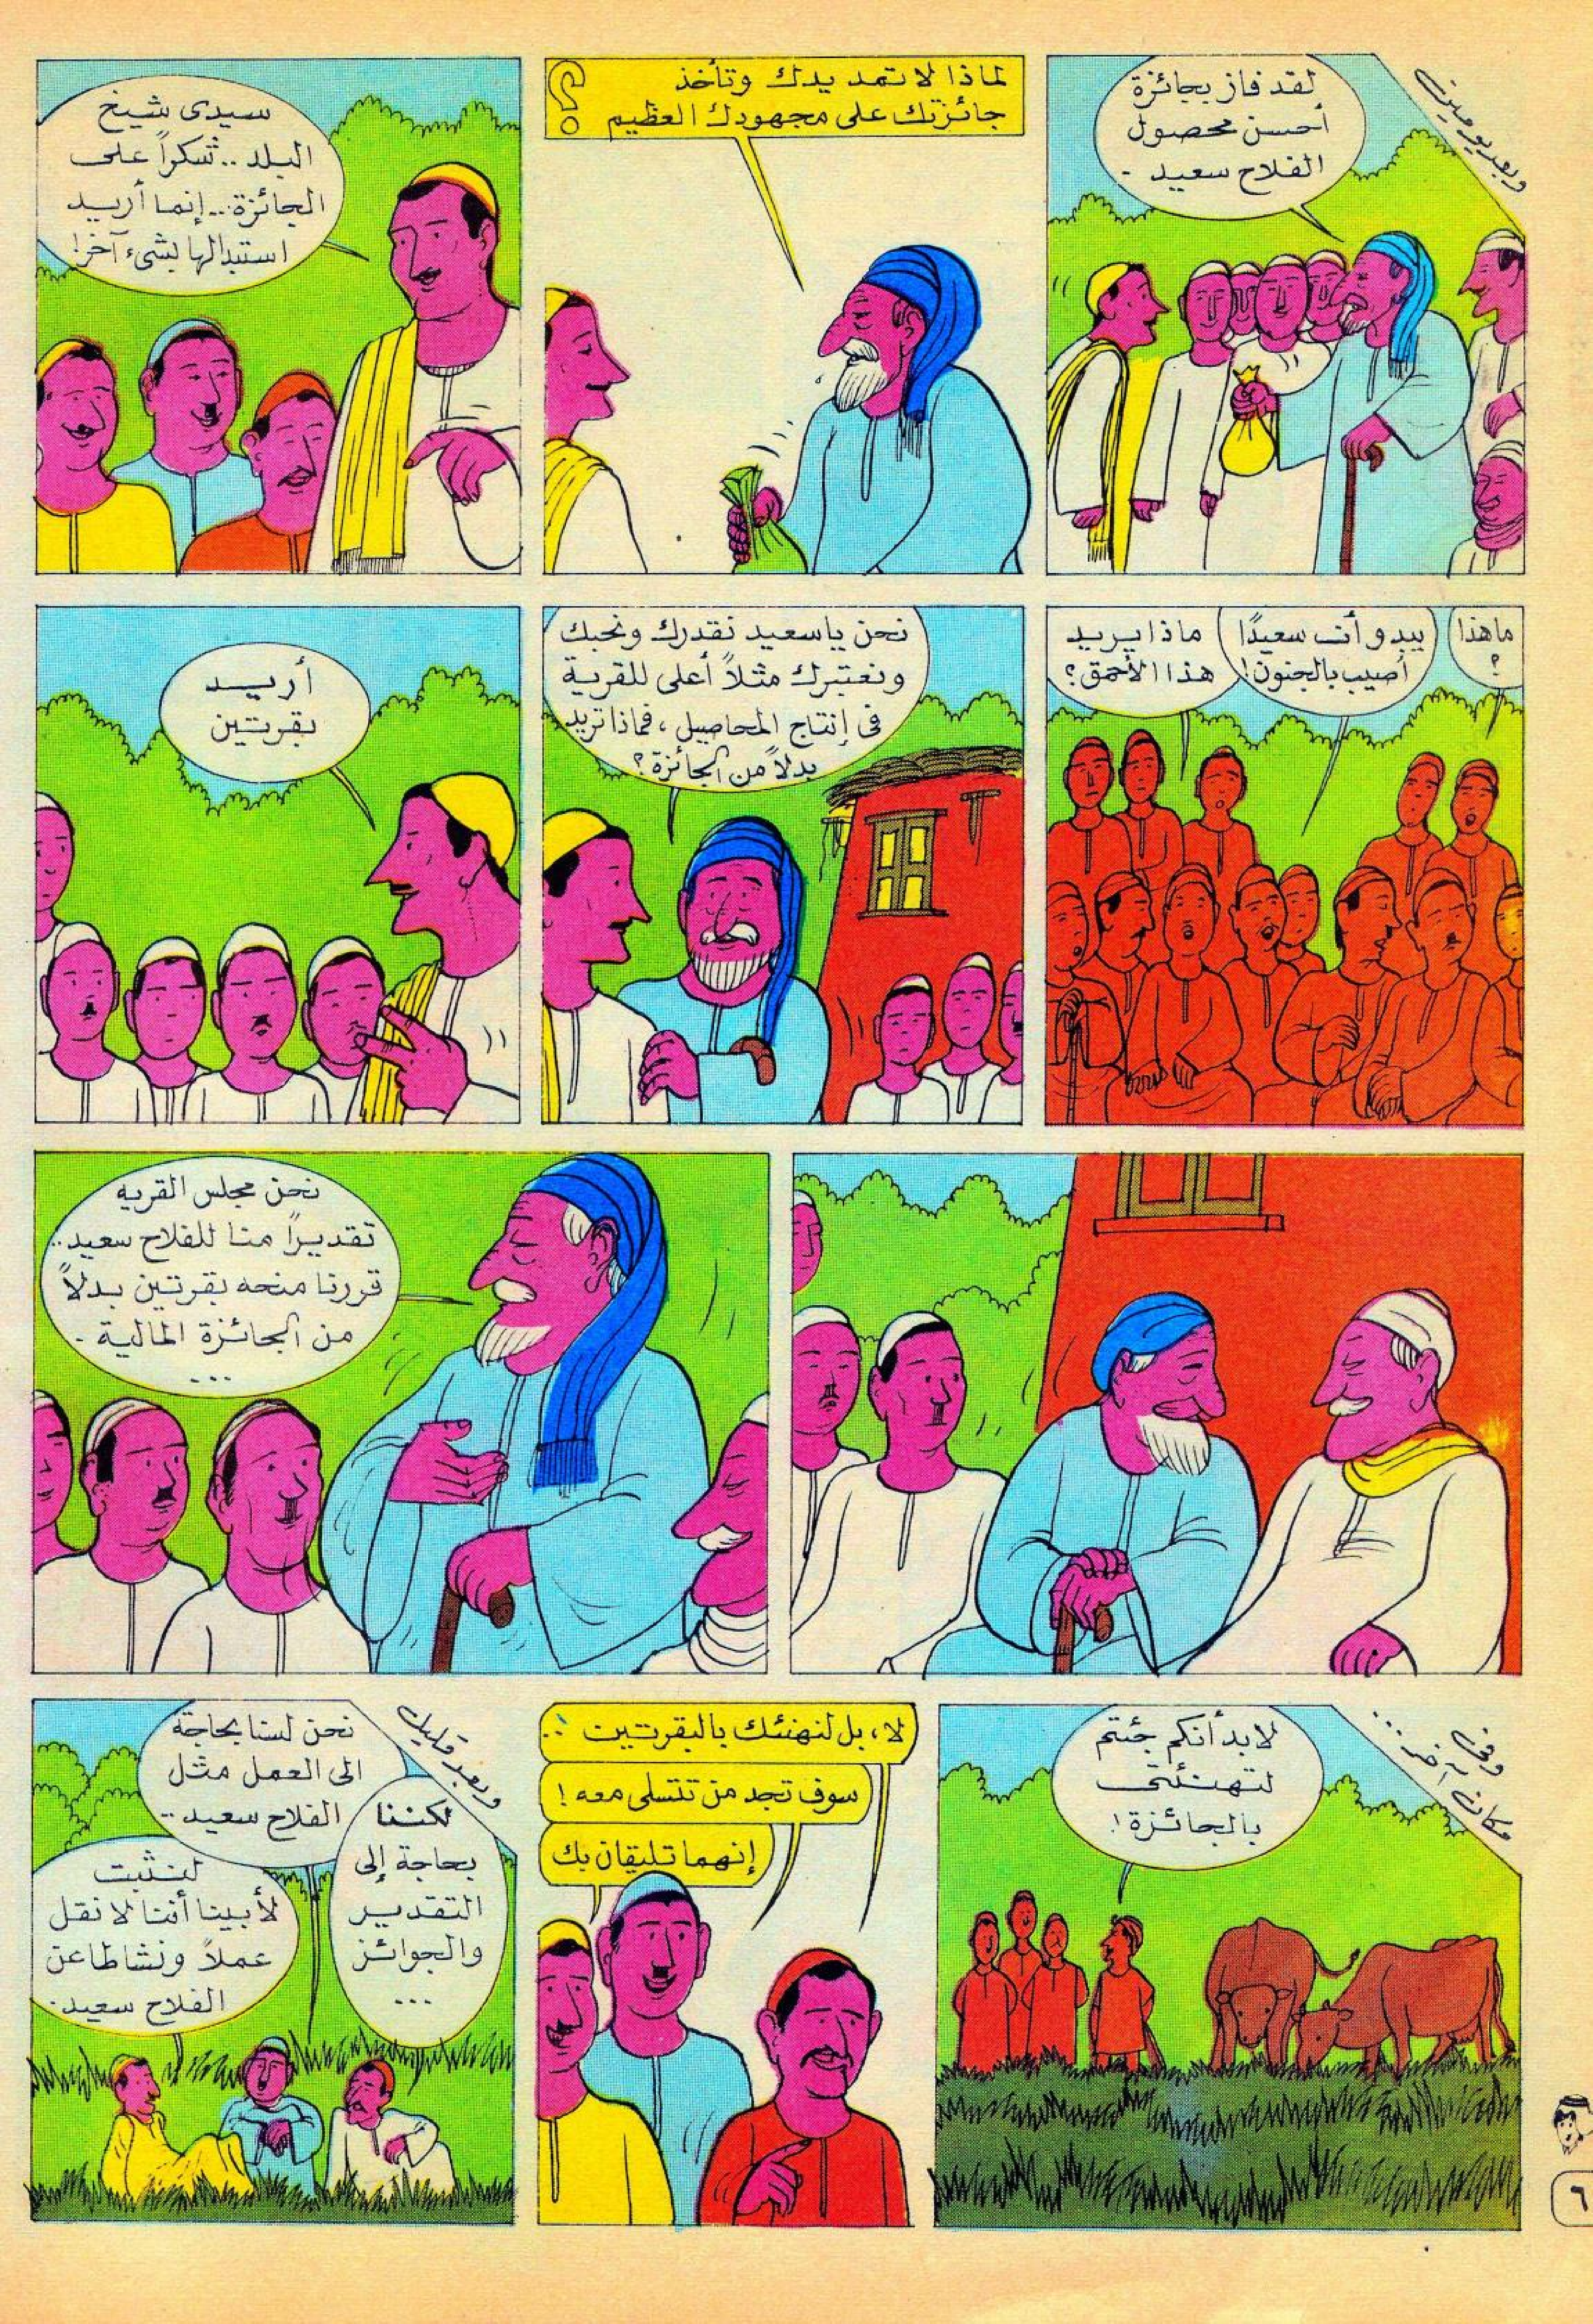 وبعد يومين
لقد فاز بجائزة
أحسن محصول
الفلاح سعيد -
لماذا لا تمد يدك وتأخذ
جائزتك على مجهودك العظيم
؟
سيدى شيخ
البلد .. شكراً على
الجائزة .. إنما أريد
استبدالها بشىء آخر!
ما هذا
؟
يبدو أن سعيدًا
أصيب بالجنون!
ماذا يريد
هذا الأحمق؟
نحن ياسعيد نقدرك ونحبك
ونعتبرك مثلاً أعلى للقرية
فى إنتاج المحاصيل، فماذا تريد
بدلاً من الجائزة؟
أريد
بقرتين
نحن مجلس القريه
تقديرًا منا للفلاح سعيد..
قررنا منحه بقرتين بدلاً
من الجائزة المالية -
...
وفى
مكان آخر...
لابد أنكم جئتم
لتهنئتى
بالجائزة!
لا، بل لنهنئك بالبقرتين ..
سوف تجد من تتسلى معه!
إنهما تليقان بك
وبعد قليل
نحن لسنا بحاجة
الى العمل مثل
الفلاح سعيد ..
لكننا
بحاجة إلى
التقدير
والجوائز
...
لنثبت
لأبينا أننا لا نقل
عملاً ونشاطا عن
الفلاح سعيد.
٦